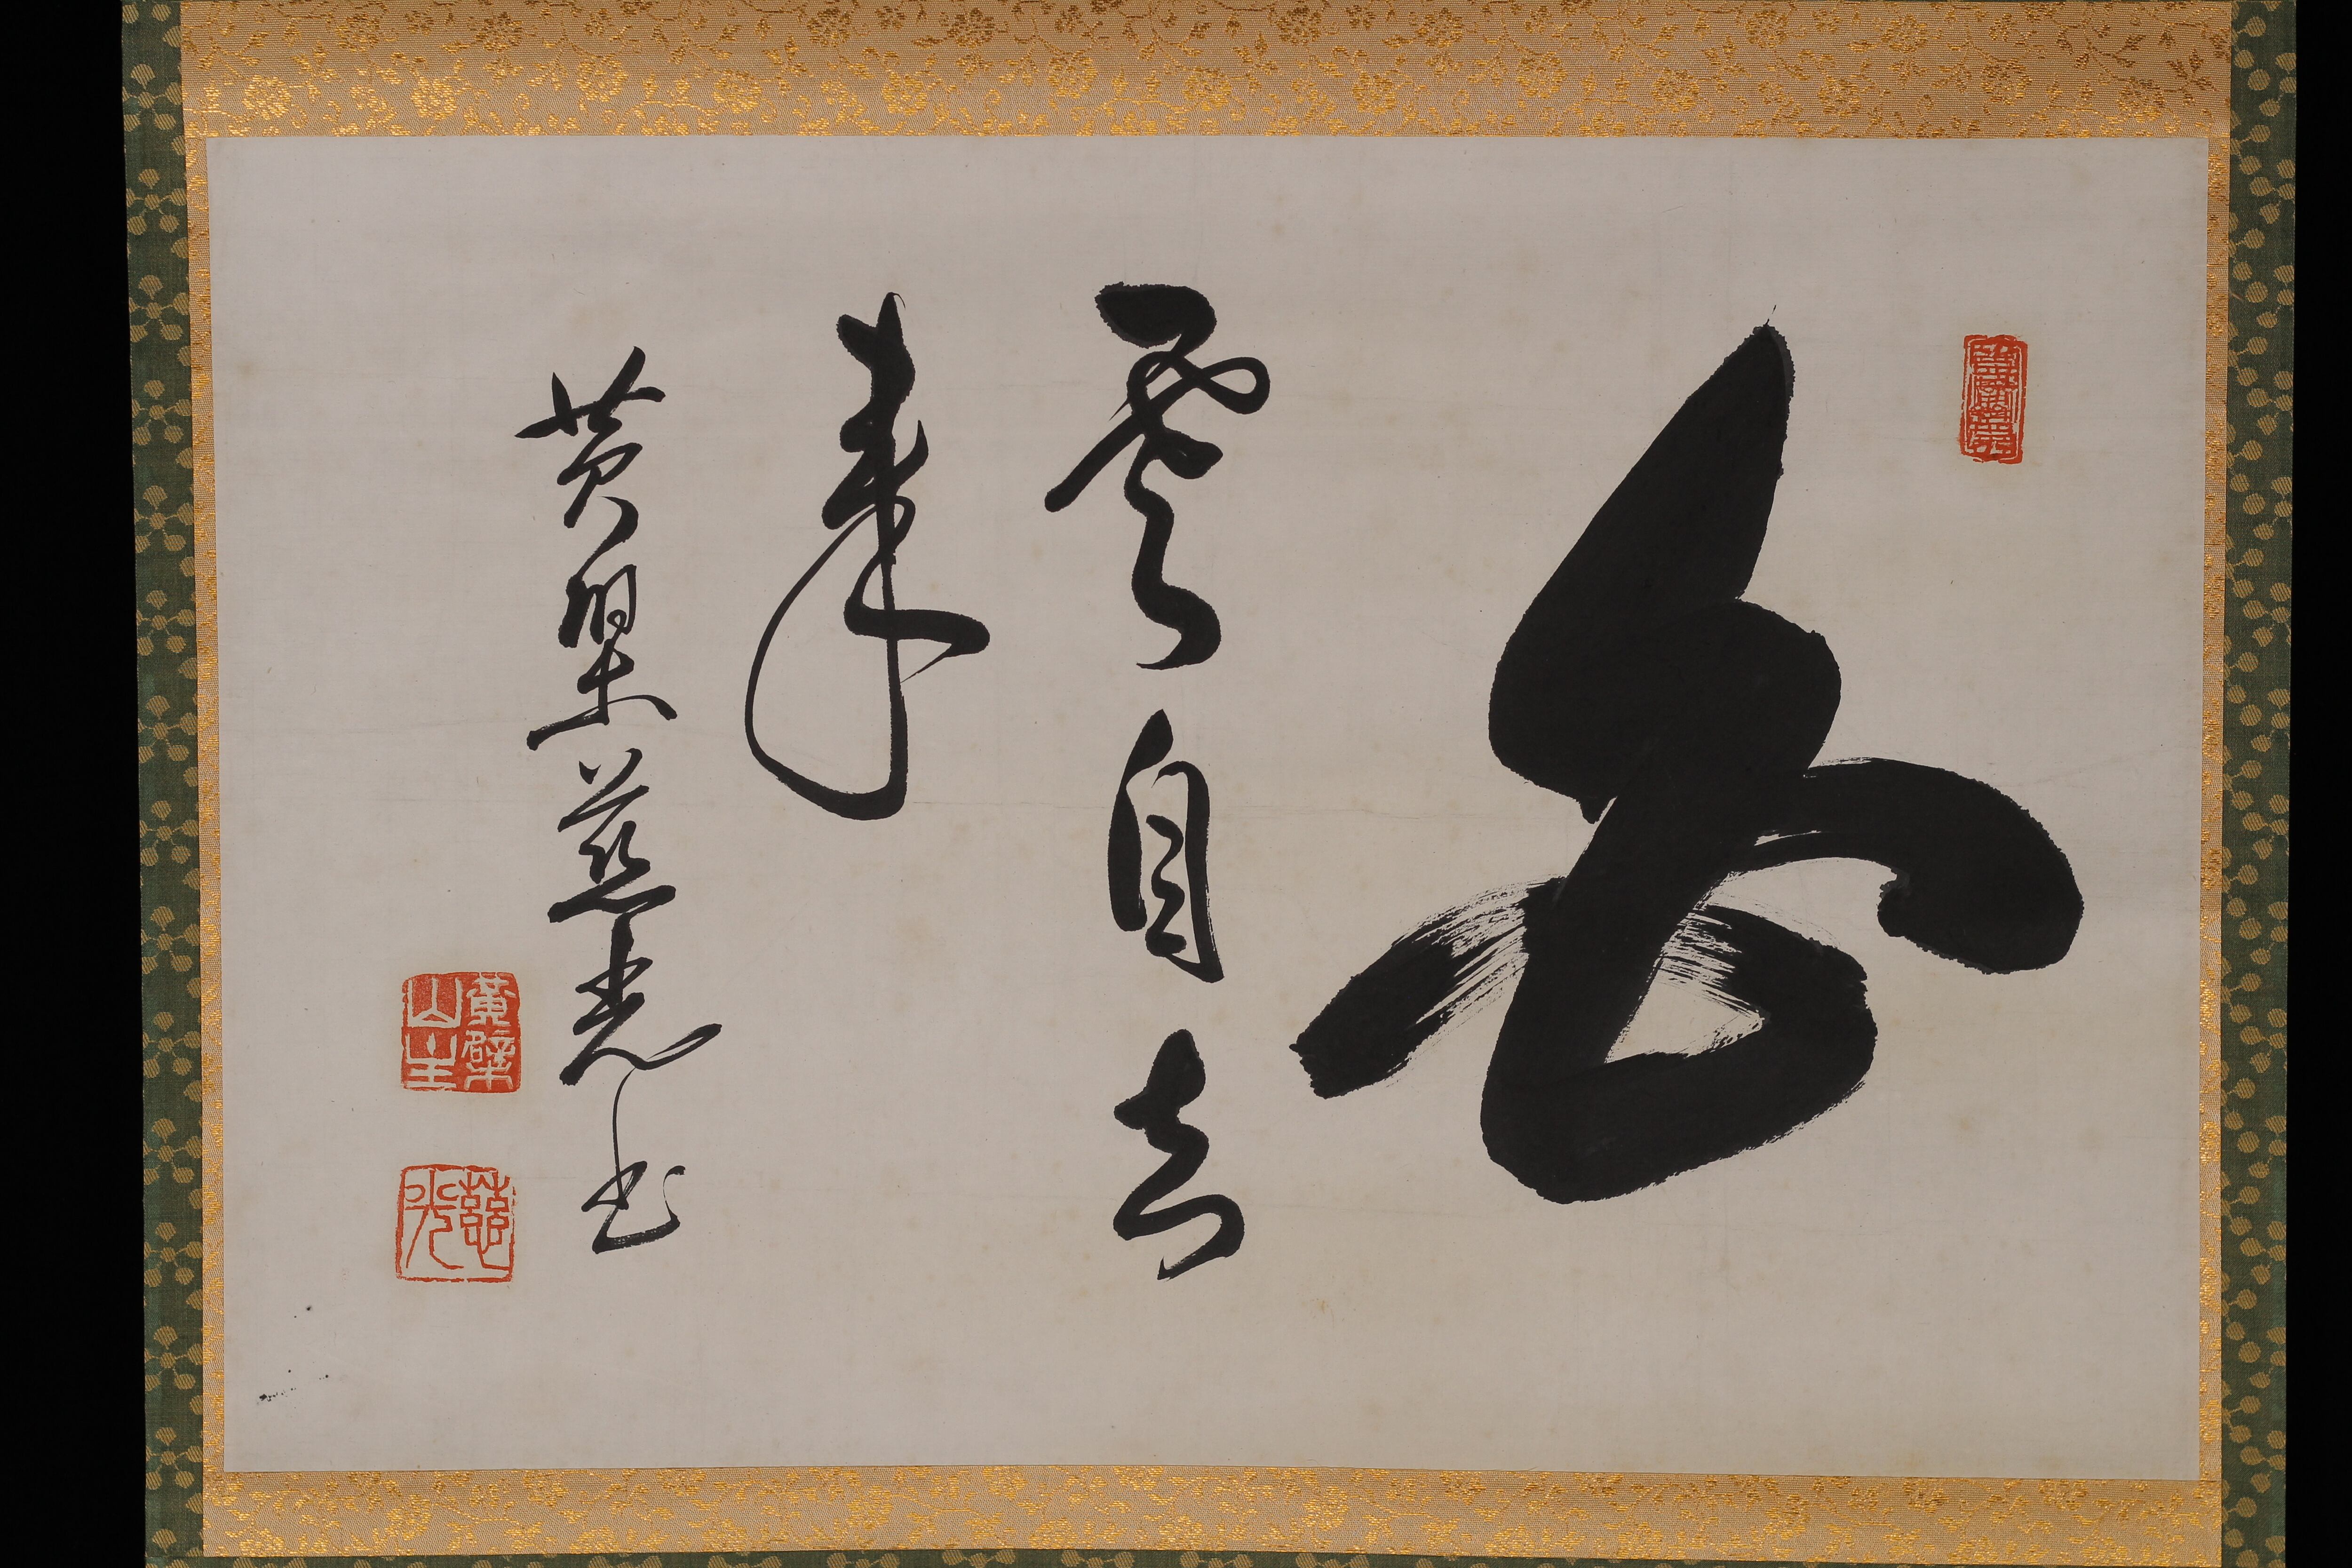 白
雲自去
来
黄檗慈光書
黄檗
山主
慈
光